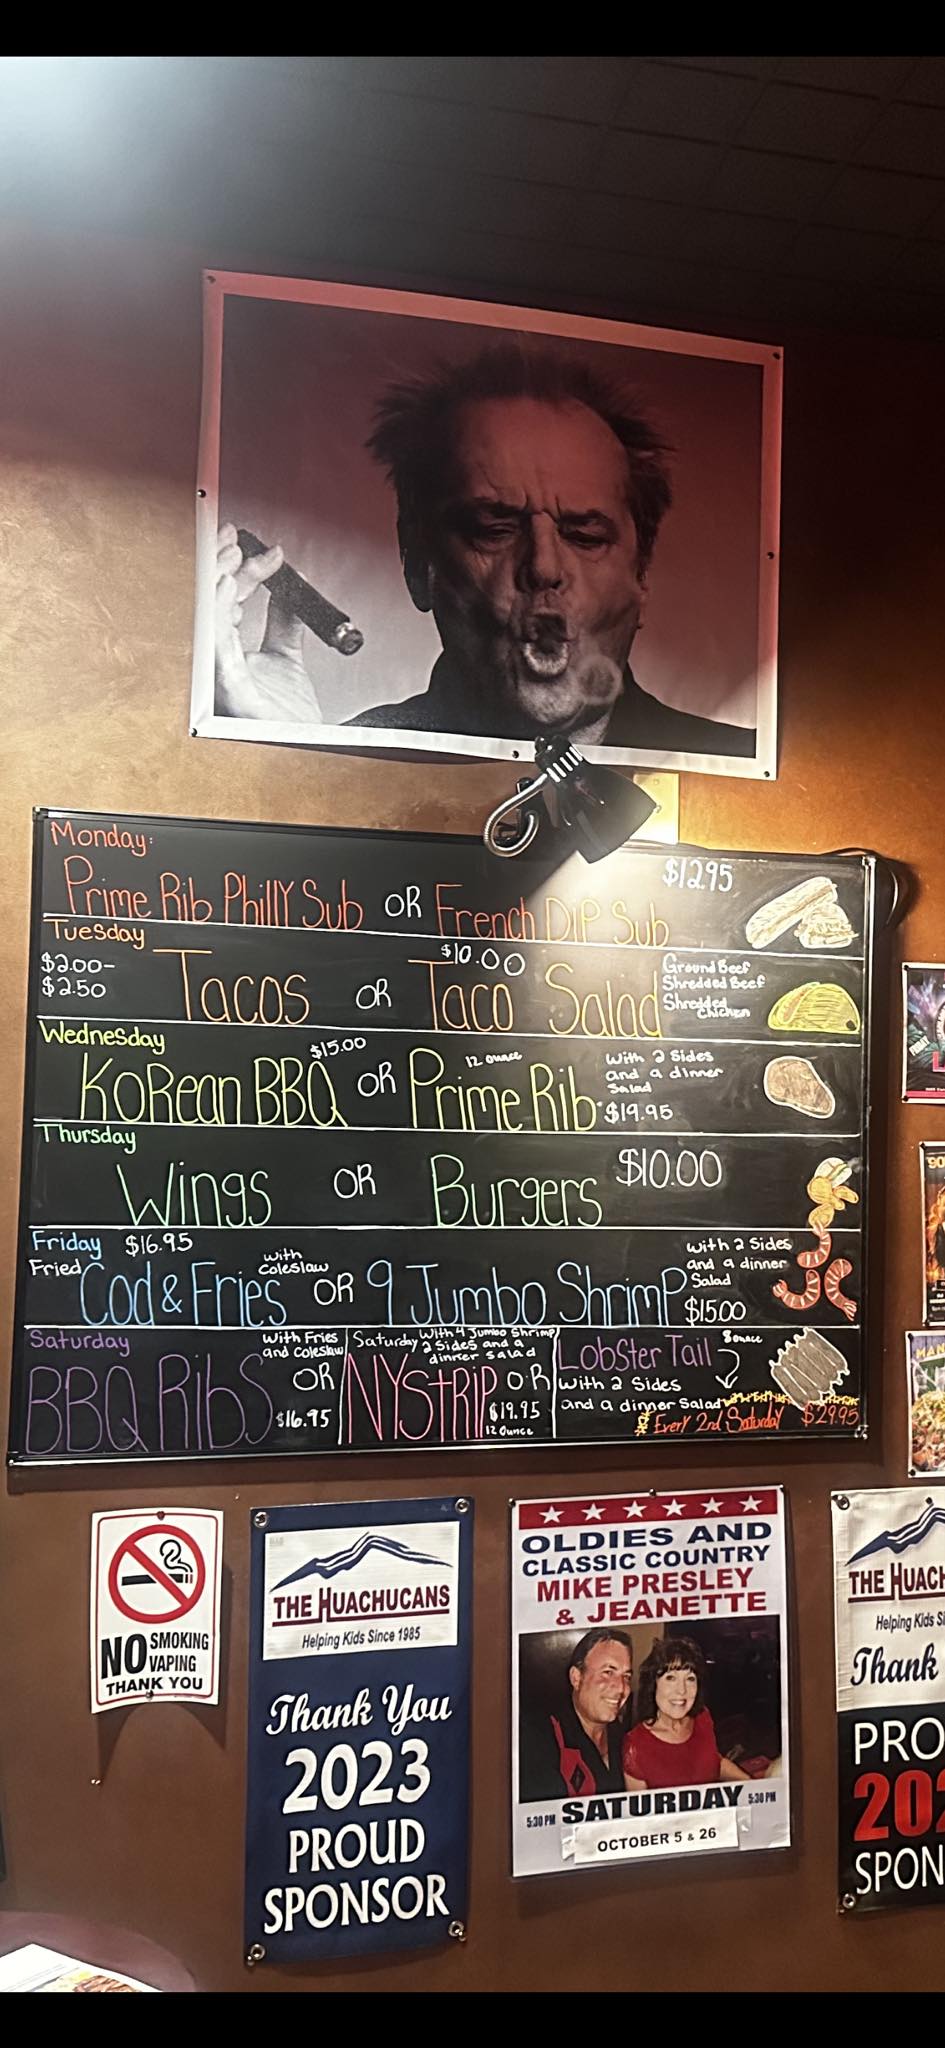 Monday:
$12.95
Prime Rib Philly Sub OR French Dip Sub
Tuesday
$2.00-
$2.50
Tacos OR Taco Salad
$10.00
Ground Beef
Shredded Beef
Shredded
Chicken
Wednesday
Korean BBQ OR Prime Rib
$15.00
12 ounce
With 2 Sides
and a dinner
Salad
$19.95
Thursday
Wings OR Burgers $10.00
Friday $16.95
Fried Cod & Fries with
Coleslaw
OR 9 Jumbo Shrimp
with 2 Sides
and a dinner
Salad
$15.00
Saturday
BBQ Ribs
With Fries
and Coleslaw
OR
$16.95
Saturday With 4 Jumbo Shrimp
2 Sides and a
dinner Salad
NYStrip OR
$19.95
12 ounce
Lobster Tail 8 ounce
With 2 Sides
and a dinner Salad
Every 2nd Saturday $29.95
NO SMOKING
VAPING
THANK YOU
THE HUACHUCANS
Helping Kids Since 1985
Thank You
2023
PROUD
SPONSOR
OLDIES AND
CLASSIC COUNTRY
MIKE PRESLEY
& JEANETTE
5:30 PM SATURDAY 5:30 PM
OCTOBER 5 & 26
THE HUACH
Helping Kids Si
Thank
PRO
202
SPON